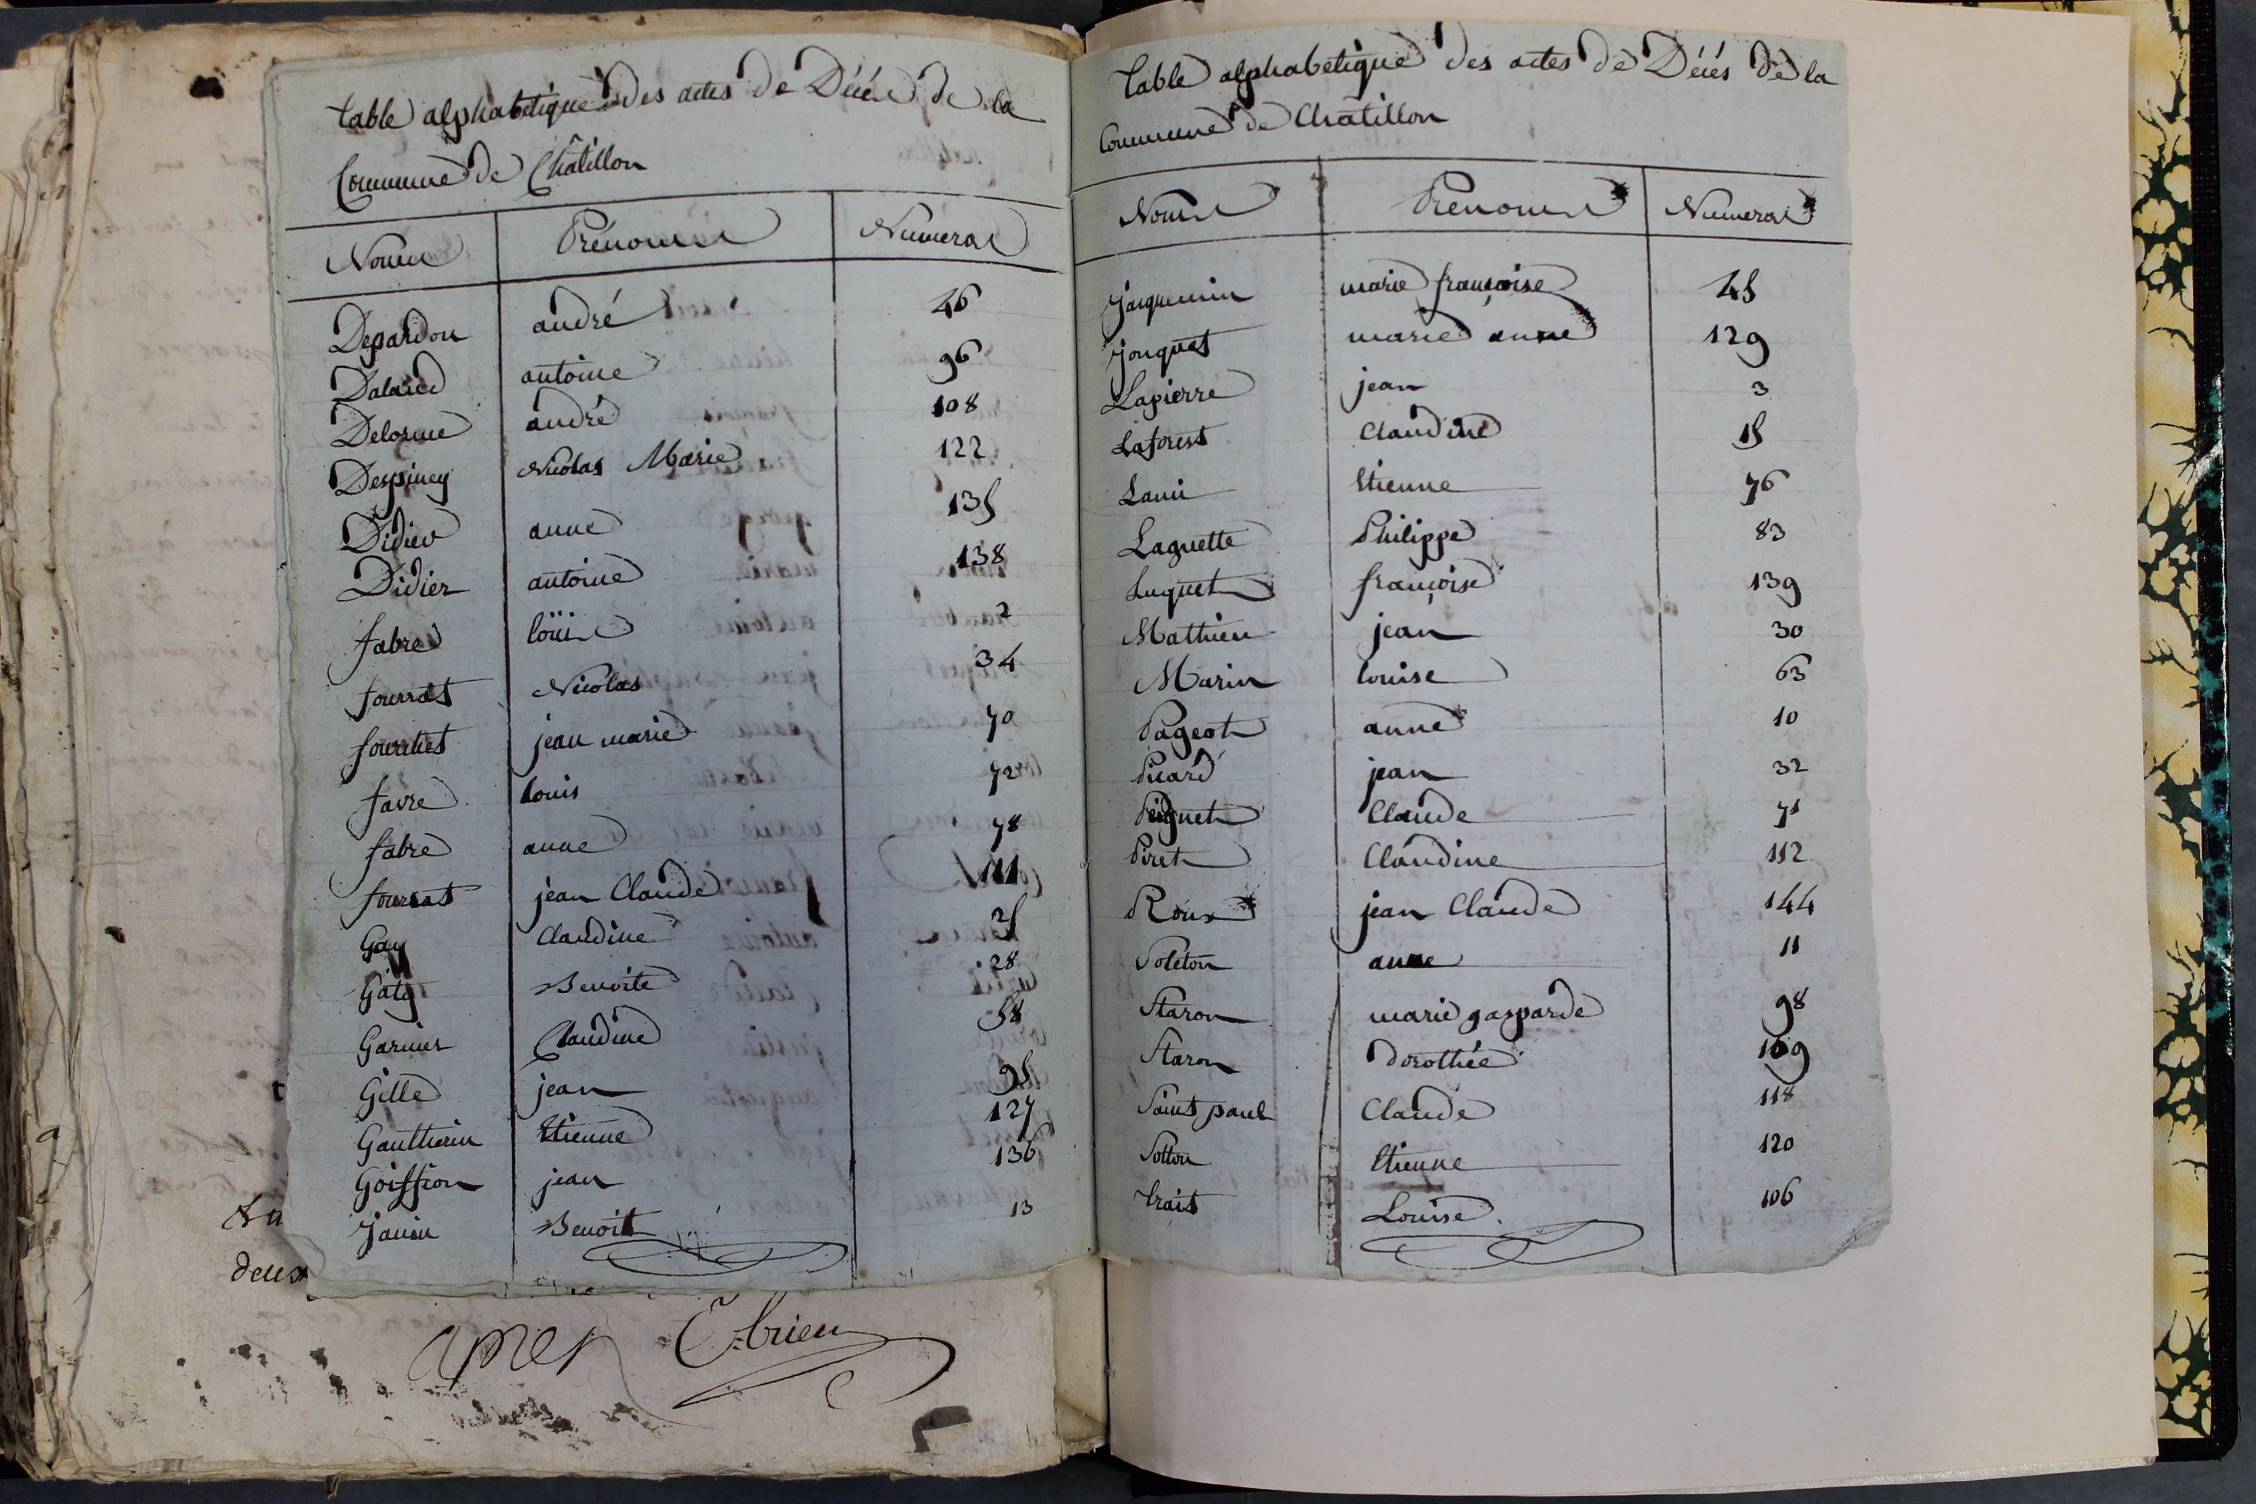 table alphabétique des actes de Décès de la
Commune de Châtillon
Noms Prénoms Numeros
Depardon andré 46
Dalaud antoine 96
Delorme andré 108
Despiney Nicolas Marie 122
Didier anne 135
Didier antoine 138
fabre loüis 2
fourrat Nicolas 34
jean marie 70
favre louis 72
fabre anne 78
fourrat jean Claude 111
Gay Claudine 25
Gaty Benoite 28
Garnier Claudine 58
Gille jean 95
Gautherin Etienne 127
Goiffion jean 136
Janin Benoit 13
deux
Ebrieu
Table alphabétique des actes de Décés de la
Commune de Chatillon
Noms Prénoms Numeros
Jacquemin marie françoise 45
jonquet marie anne 129
Lapierre jean 3
Laforest Claudine 15
Lami Etienne 76
Laguette Philippe 83
Luquet françoise 139
Mathieu jean 30
Marin louise 63
Pageot anne 10
Picard jean 32
Peignet Claude 71
Piret Claudine 112
Roux jean Claude 144
Soleton anne 11
Staron marie gasparde 98
Staron dorothée 109
Saint paul Claude 118
Sotton Etienne 120
trait Louise 106